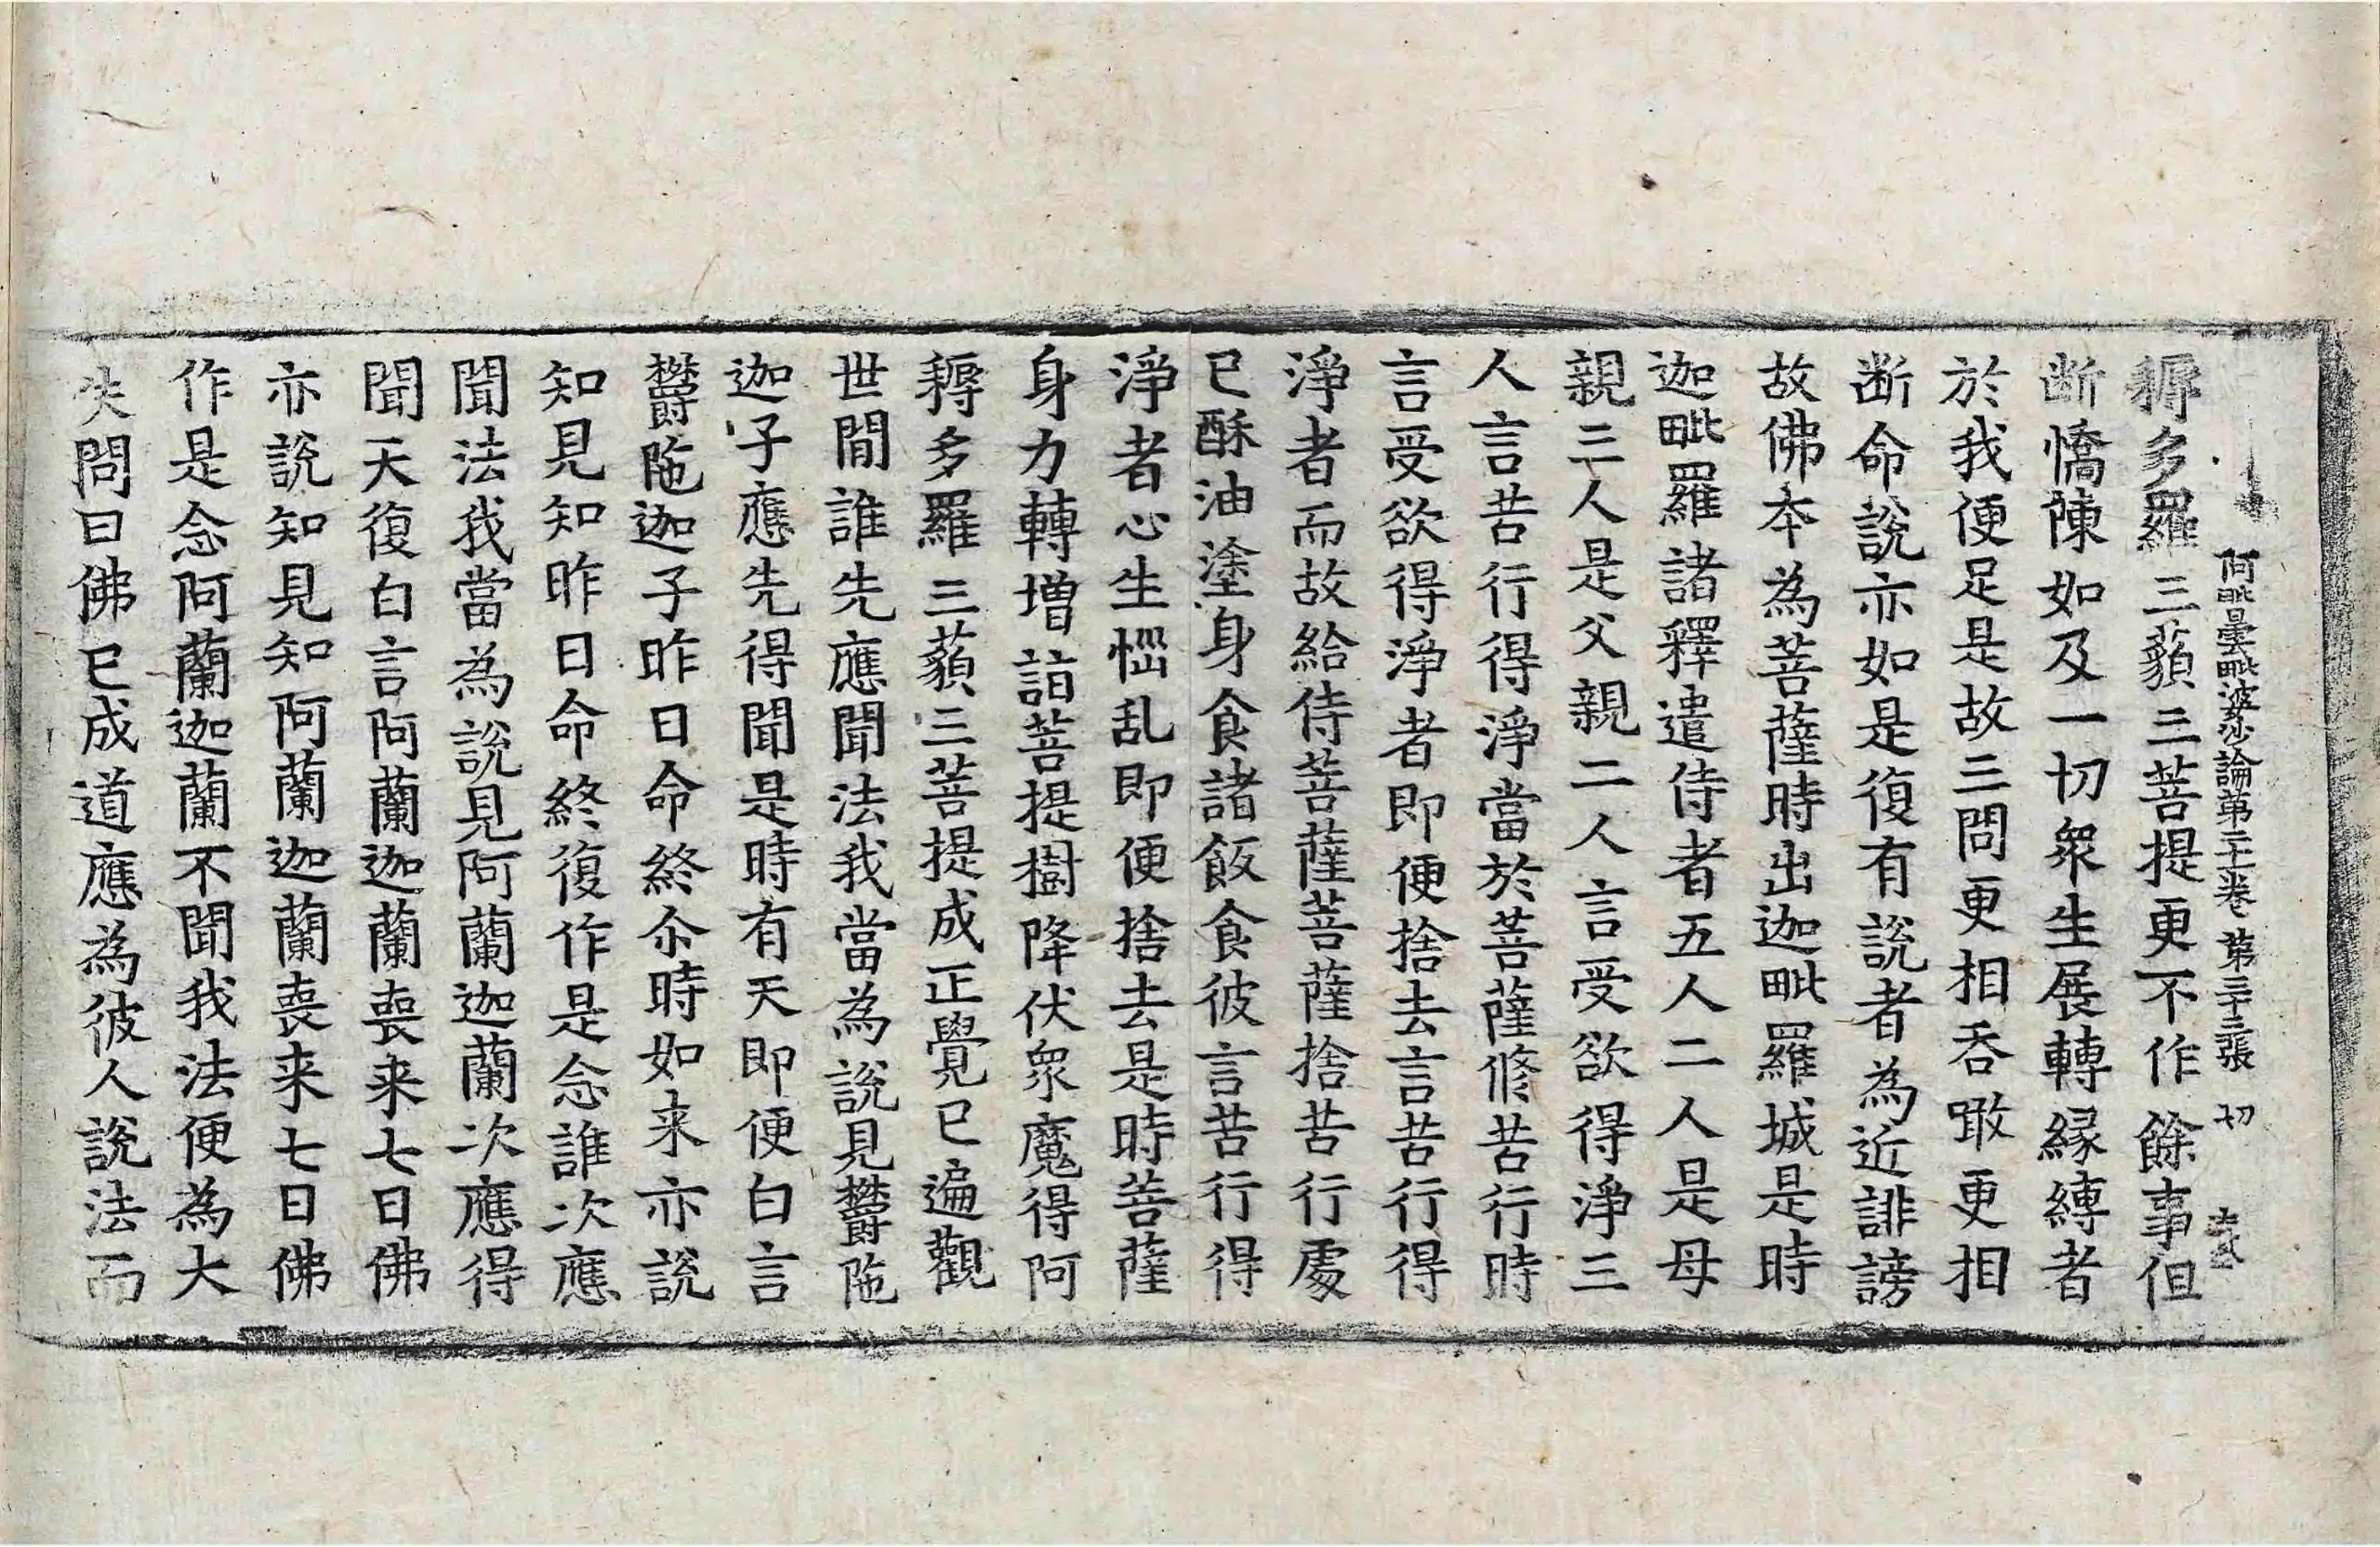 阿毗曇毗婆沙論第二十一卷 第三十三張 切
耨多羅三藐三菩提更不作餘事但
断憍陳如及一切衆生展轉縁縛者
於我便足是故三問更相吞噉更相
断命說亦如是復有說者為近誹謗
故佛本為菩薩時出迦毗羅城是時
迦毗羅諸釋遣侍者五人二人是母
親三人是父親二人言受欲得淨三
人言苦行得淨當於菩薩修苦行時
言受欲得淨者即便捨去言苦行得
淨者而故給侍菩薩菩薩捨苦行處
已酥油塗身食諸飯食彼言苦行得
淨者心生惱乱即便捨去是時菩薩
身力轉增詣菩提樹降伏衆魔得阿
耨多羅三藐三菩提成正覺已遍觀
世間誰先應聞法我當為說見欝陁
迦子應先得聞是時有天即便白言
欝陁迦子昨日命終尒時如来亦說
知見知昨日命終復作是念誰次應
聞法我當為說見阿蘭迦蘭次應得
聞天復白言阿蘭迦蘭喪来七日佛
亦說知見知阿蘭迦蘭喪来七日佛
作是念阿蘭迦蘭不聞我法便為大
失問曰佛已成道應為彼人說法而